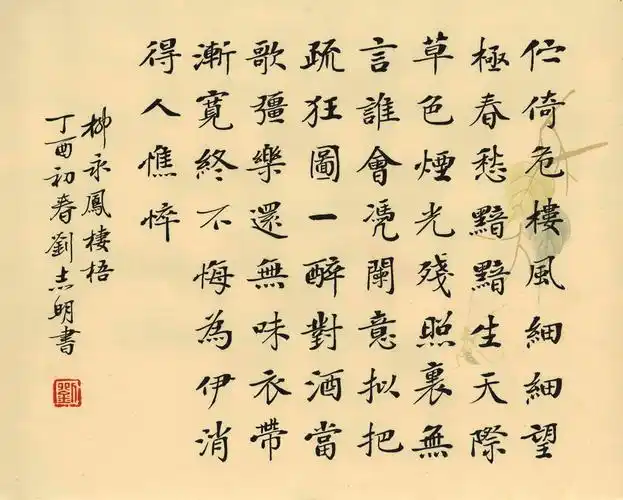 伫倚危樓風細細望
極春愁黯黯生天際
草色煙光殘照裏無
言誰會凭闌意拟把
疏狂圖一醉對酒當
歌彊樂還無味衣帶
漸寬終不悔為伊消
得人憔悴
柳永鳳棲梧
丁酉初春劉志明書
劉